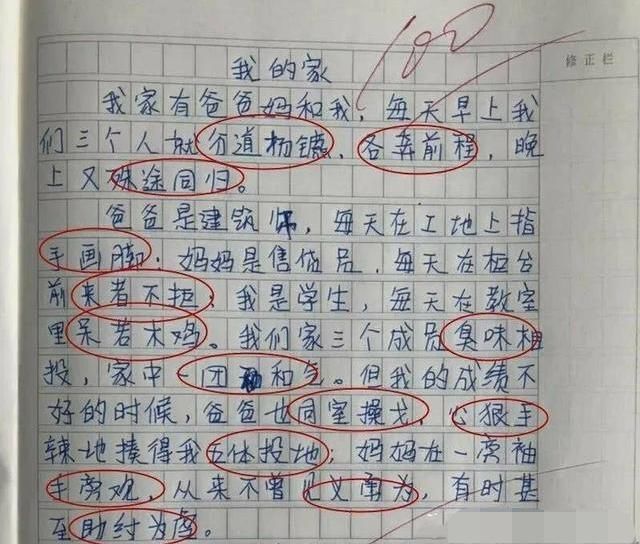 100
修正栏
我的家
我家有爸爸妈和我，每天早上我
们三个人就分道扬镳、各奔前程，晚
上又殊途同归。
爸爸是建筑师，每天在工地上指
手画脚；妈妈是售货员，每天在柜台
前来者不拒；我是学生，每天在教室
里呆若木鸡。我们家三个成员臭味相
投，家中一团和气。但我的成绩不
好的时候，爸爸也同室操戈，心狠手
辣地揍得我五体投地；妈妈在一旁袖
手旁观，从来不曾见义勇为，有时甚
至助纣为虐。